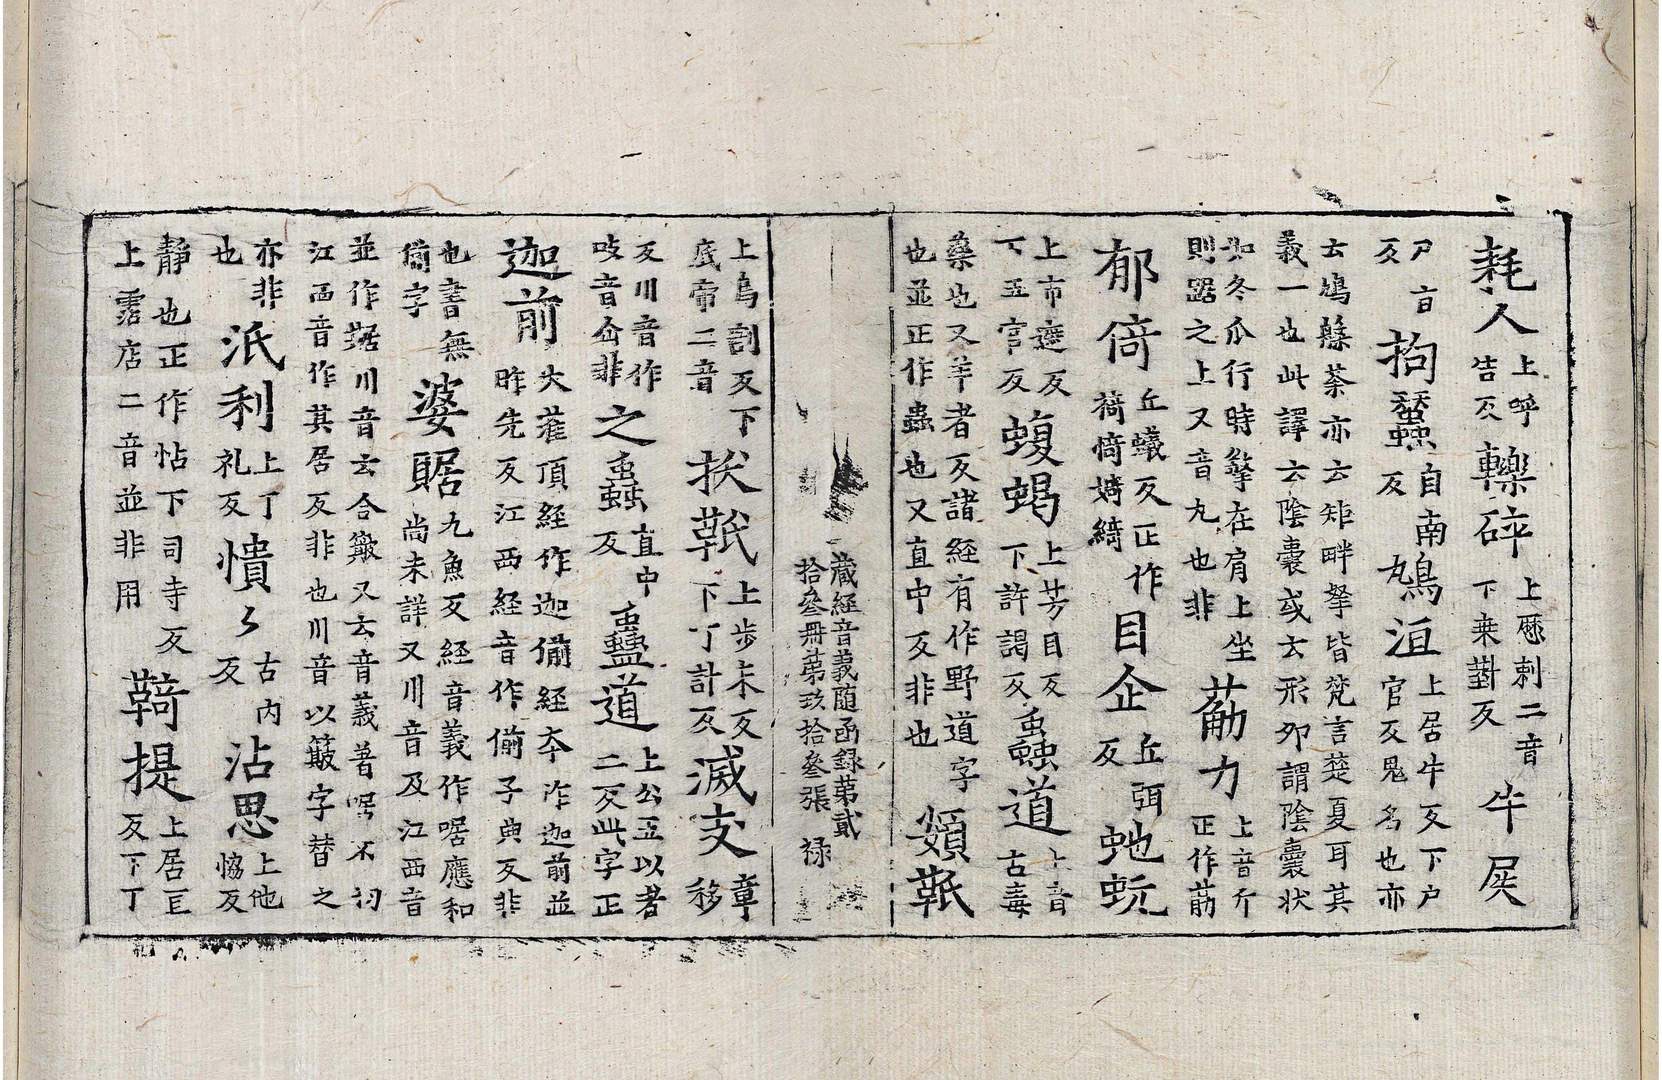 耗人 上呼告反 轢碎 上歷刺二音下桒對反 牛𡱁
尸旨反 抱蠶 自南反 鳩洹 上居牛反下戶官反鬼名也亦
云鳩槃荼亦云矩畔拏皆梵言楚夏耳其義一也此譯云陰囊或云形夘謂陰囊状
如冬瓜行時擎在肩上坐則踞之上又音丸也非 荕力 上音斤正作筋
郁倚 丘蟻反正作𧛸㥓婍綺 目企 丘弭反 虵蚖
上市遮反下五官反 蝮蝎 上芳目反下許謁反 蟲道 上音古毒
藥也又羊者反諸經有作野道字也並正作蠱也又直中反非也 頞𩉬
藏經音義随函録苐貳拾叄冊苐玖拾叄張 禄
上烏割反下底帝二音 拔𩉬 上步末反下丁計反 滅支 章移
反川音作吱音㕘非 之蟲 直中反 蠱道 上公五以者二反此字正
迦前 大灌頂經作迦偂經夲作迦前並昨先反江西經音作偂子典反非
也書無偂字 婆䝻 九魚反經音義作啹應和尚未詳又川音及江西音
並作䝻川音云合䉤又云音義著啹不切江西音作其居反非也川音以簸字替之
亦非也 泜利 上丁礼反 憒〻 古内反 沾思 上他恊反
靜也正作怗下司寺反上霑店二音並非用 鞊提 上居宜反下丁